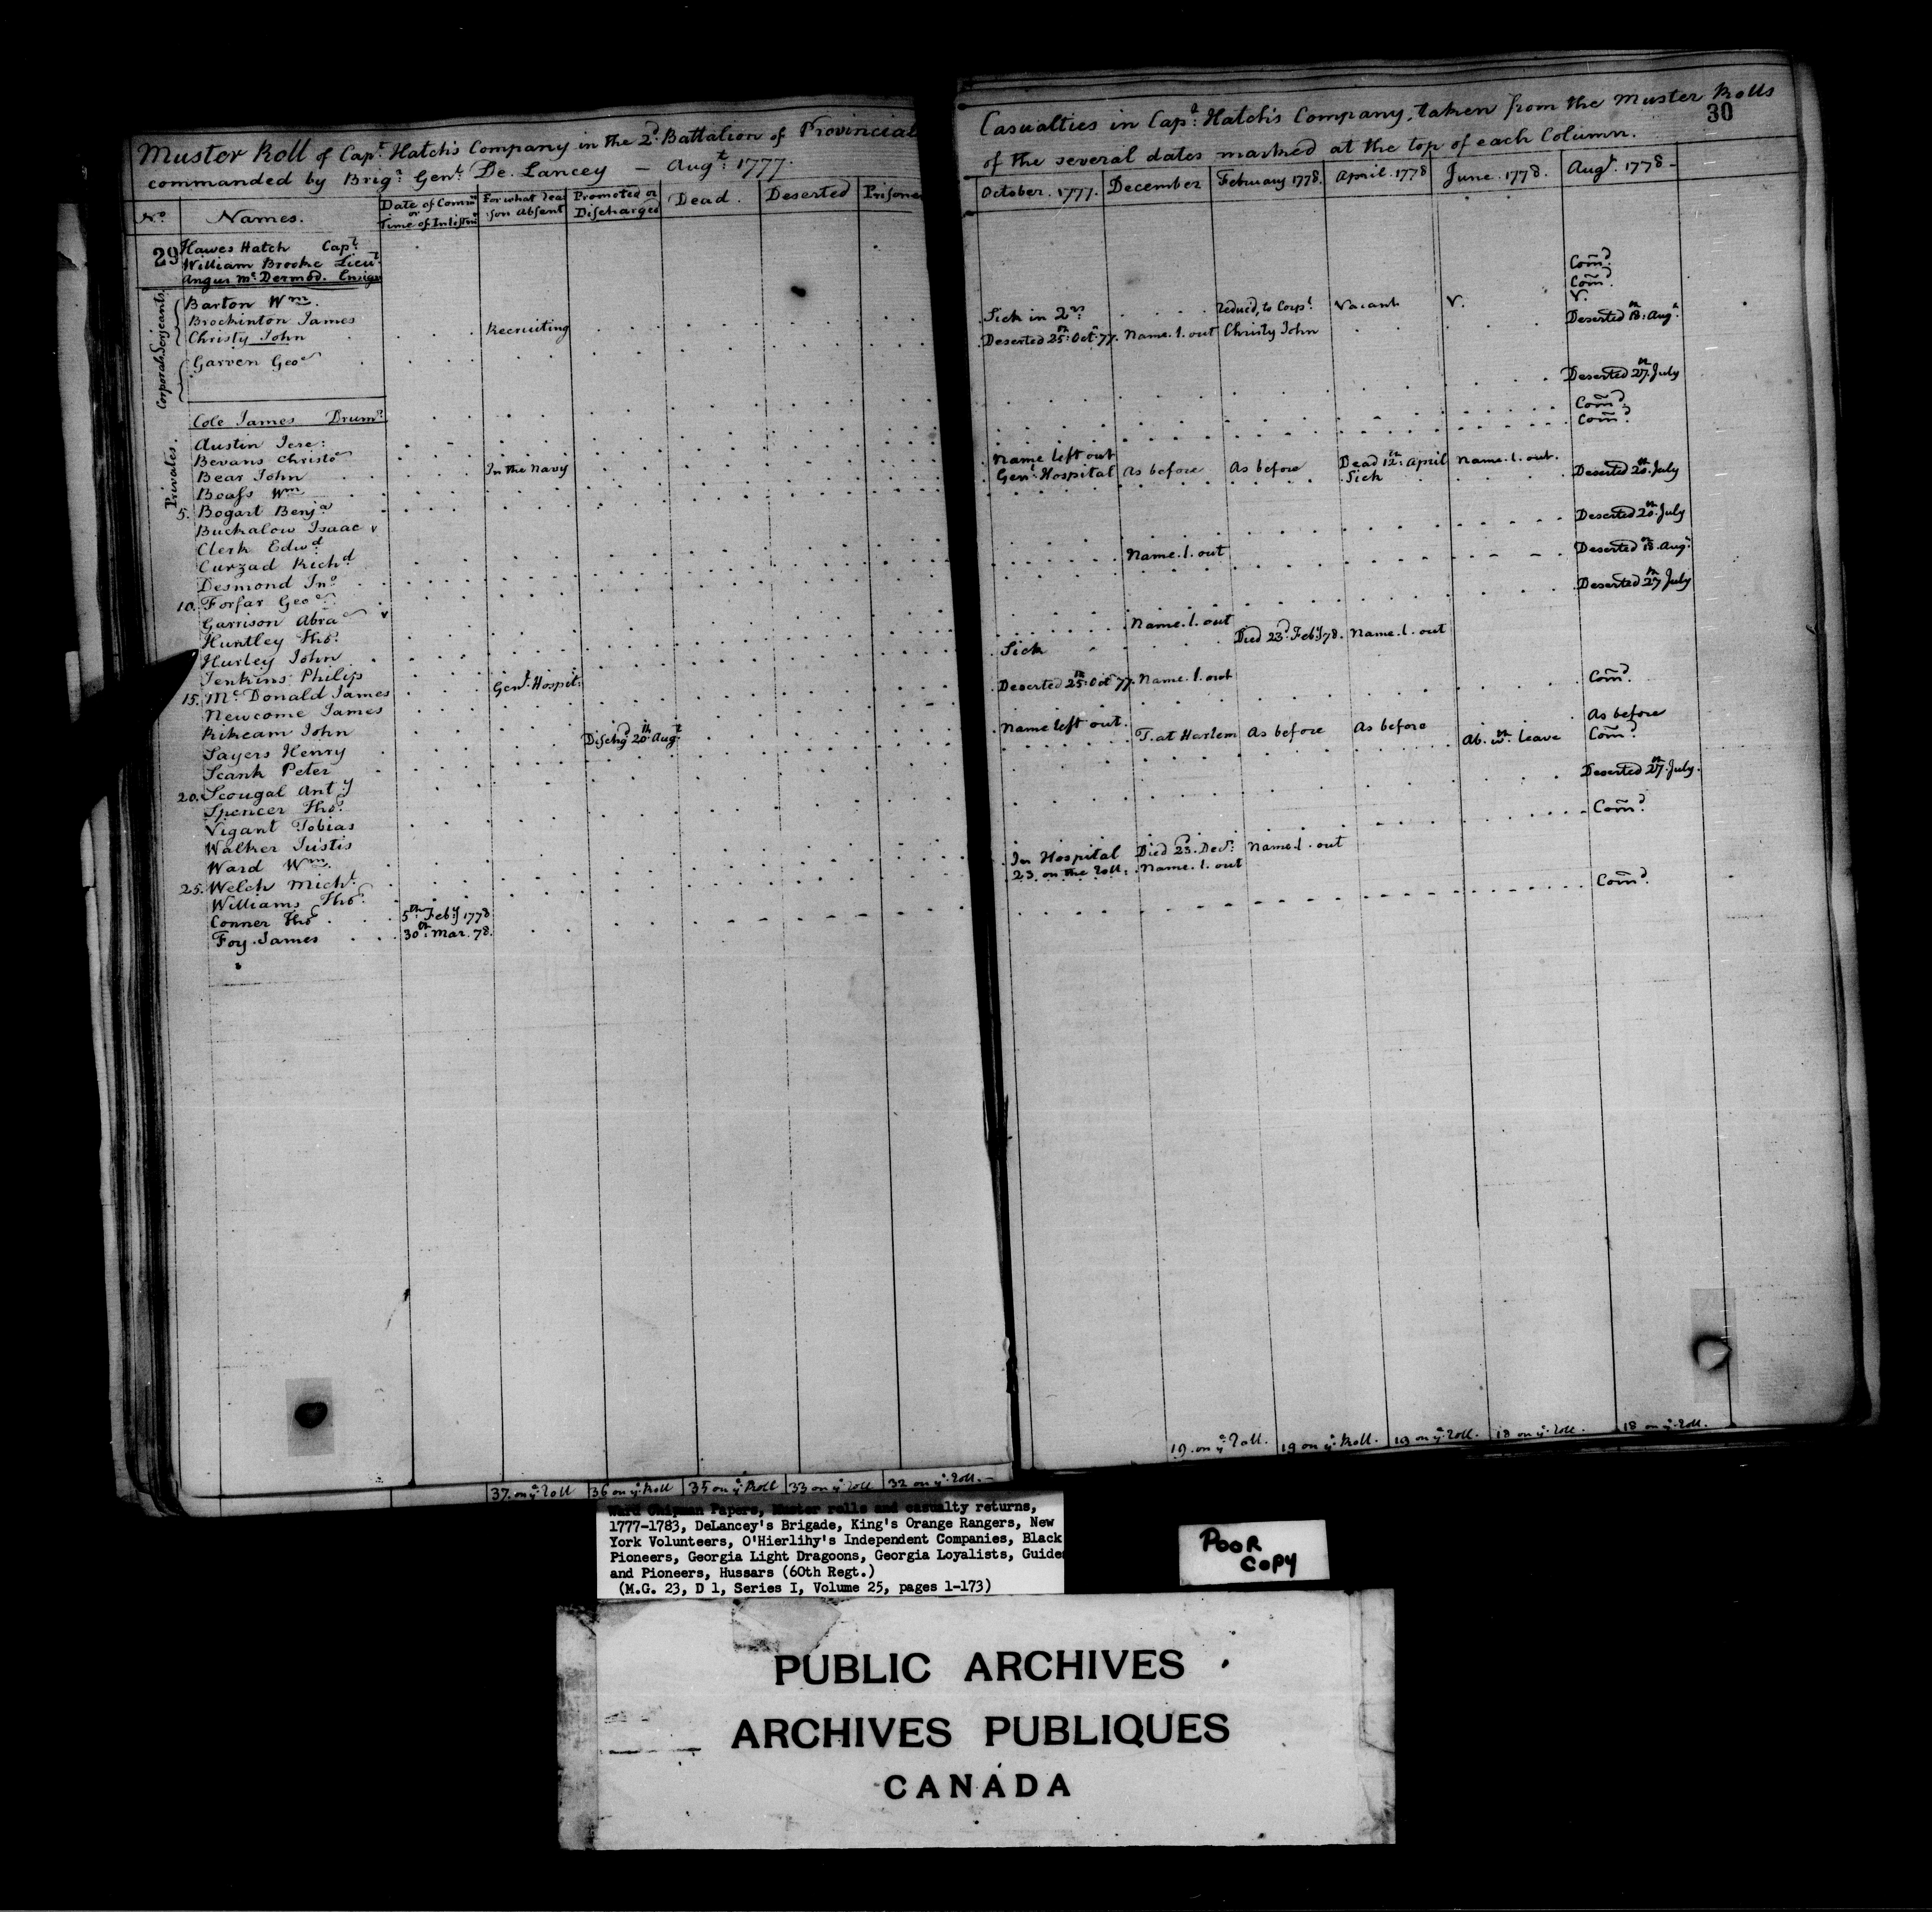 Muster Roll of Capt. Hatch's Company in the 2d. Battalion of Provincial
commanded by Brigr. Genl. De. Lancey — Augt. 1777.
No. Names. Date of Comn. or Time of Inlistmt. For what rea-son absent Promoted or Discharged Dead. Deserted Prisoner
29 Hawes Hatch Capt.
William Brooke Lieut.
Angus Mc.Dermod. Ensign
Serjeants.
Barton Wm.
Brockinton James Recruiting
Christy John
Corporals
Garven Geoe
Cole James Drumr.
Privates.
Austin Jere:
Bevans Christo
Bear John In the Navy
Boass Wm
5. Bogart Benja
Buckalow Isaac v
Clerk Edwd
Curzad Richd
Desmond Jno
10. Forfar Geoe
Garrison Abra v
Huntley Thos.
Hurley John
Jenkins Philip
15. Mc.Donald James Genl. Hospitl.
Newcome James
Rikeam John
Sayers Henry Dischgd 20th. Augt.
Scank Peter
20. Scougal Anty
Spencer Thos.
Vigant Tobias
Walker Justis
Ward Wm.
25. Welch Michl.
Williams Thos.
Conner Thos. 5th. Feby 1778
Foy James 30th. Mar. 78.
37. on ye. Roll 36 on ye. Roll 35 on ye. Roll 33 on ye. roll 32 on ye. roll.
30
Casualties in Capt. Hatch's Company, taken from the Muster Rolls
of the several dates marked at the top of each Column.
October. 1777. December February 1778. April. 1778 June. 1778. Augt. 1778
Comd.
Comd.
Sick in 2rs. reduced, to Corpl. Vacant V. V.
Deserted 25th. Oct. 77. Name. l. out Christy John Deserted 18th. Augt.
Deserted 27th. July
Comd.
Comd.
Name left out
Genl. Hospital As before As before Dead 12th. April Name. l. out.
Sick Deserted 20th. July
Deserted 20th. July
Name. l. out Deserted 18th. Augt.
Deserted 27th July
Name. l. out
Sick Died 23d. Feby 78. Name. l. out
Deserted 25th. Oct 77. Name. l. out Comd.
Name left out. As before
T. at Harlem As before As before Ab. wth. leave Comd.
Deserted 27th. July.
Comd.
In Hospital Died 23d. Decr. Name. l. out
23 on the roll. Name. l. out
Comd.
19. on ye. roll. 19 on ye. Roll. 19 on ye. roll. 18 on ye. roll. 18 on ye. roll.
Ward Chipman Papers, Muster rolls and casualty returns,
1777-1783, DeLancey's Brigade, King's Orange Rangers, New
York Volunteers, O'Hierlihy's Independent Companies, Black
Pioneers, Georgia Light Dragoons, Georgia Loyalists, Guides
and Pioneers, Hussars (60th Regt.)
(M.G. 23, D 1, Series I, Volume 25, pages 1-173)
POOR
COPY
PUBLIC ARCHIVES
ARCHIVES PUBLIQUES
CANADA